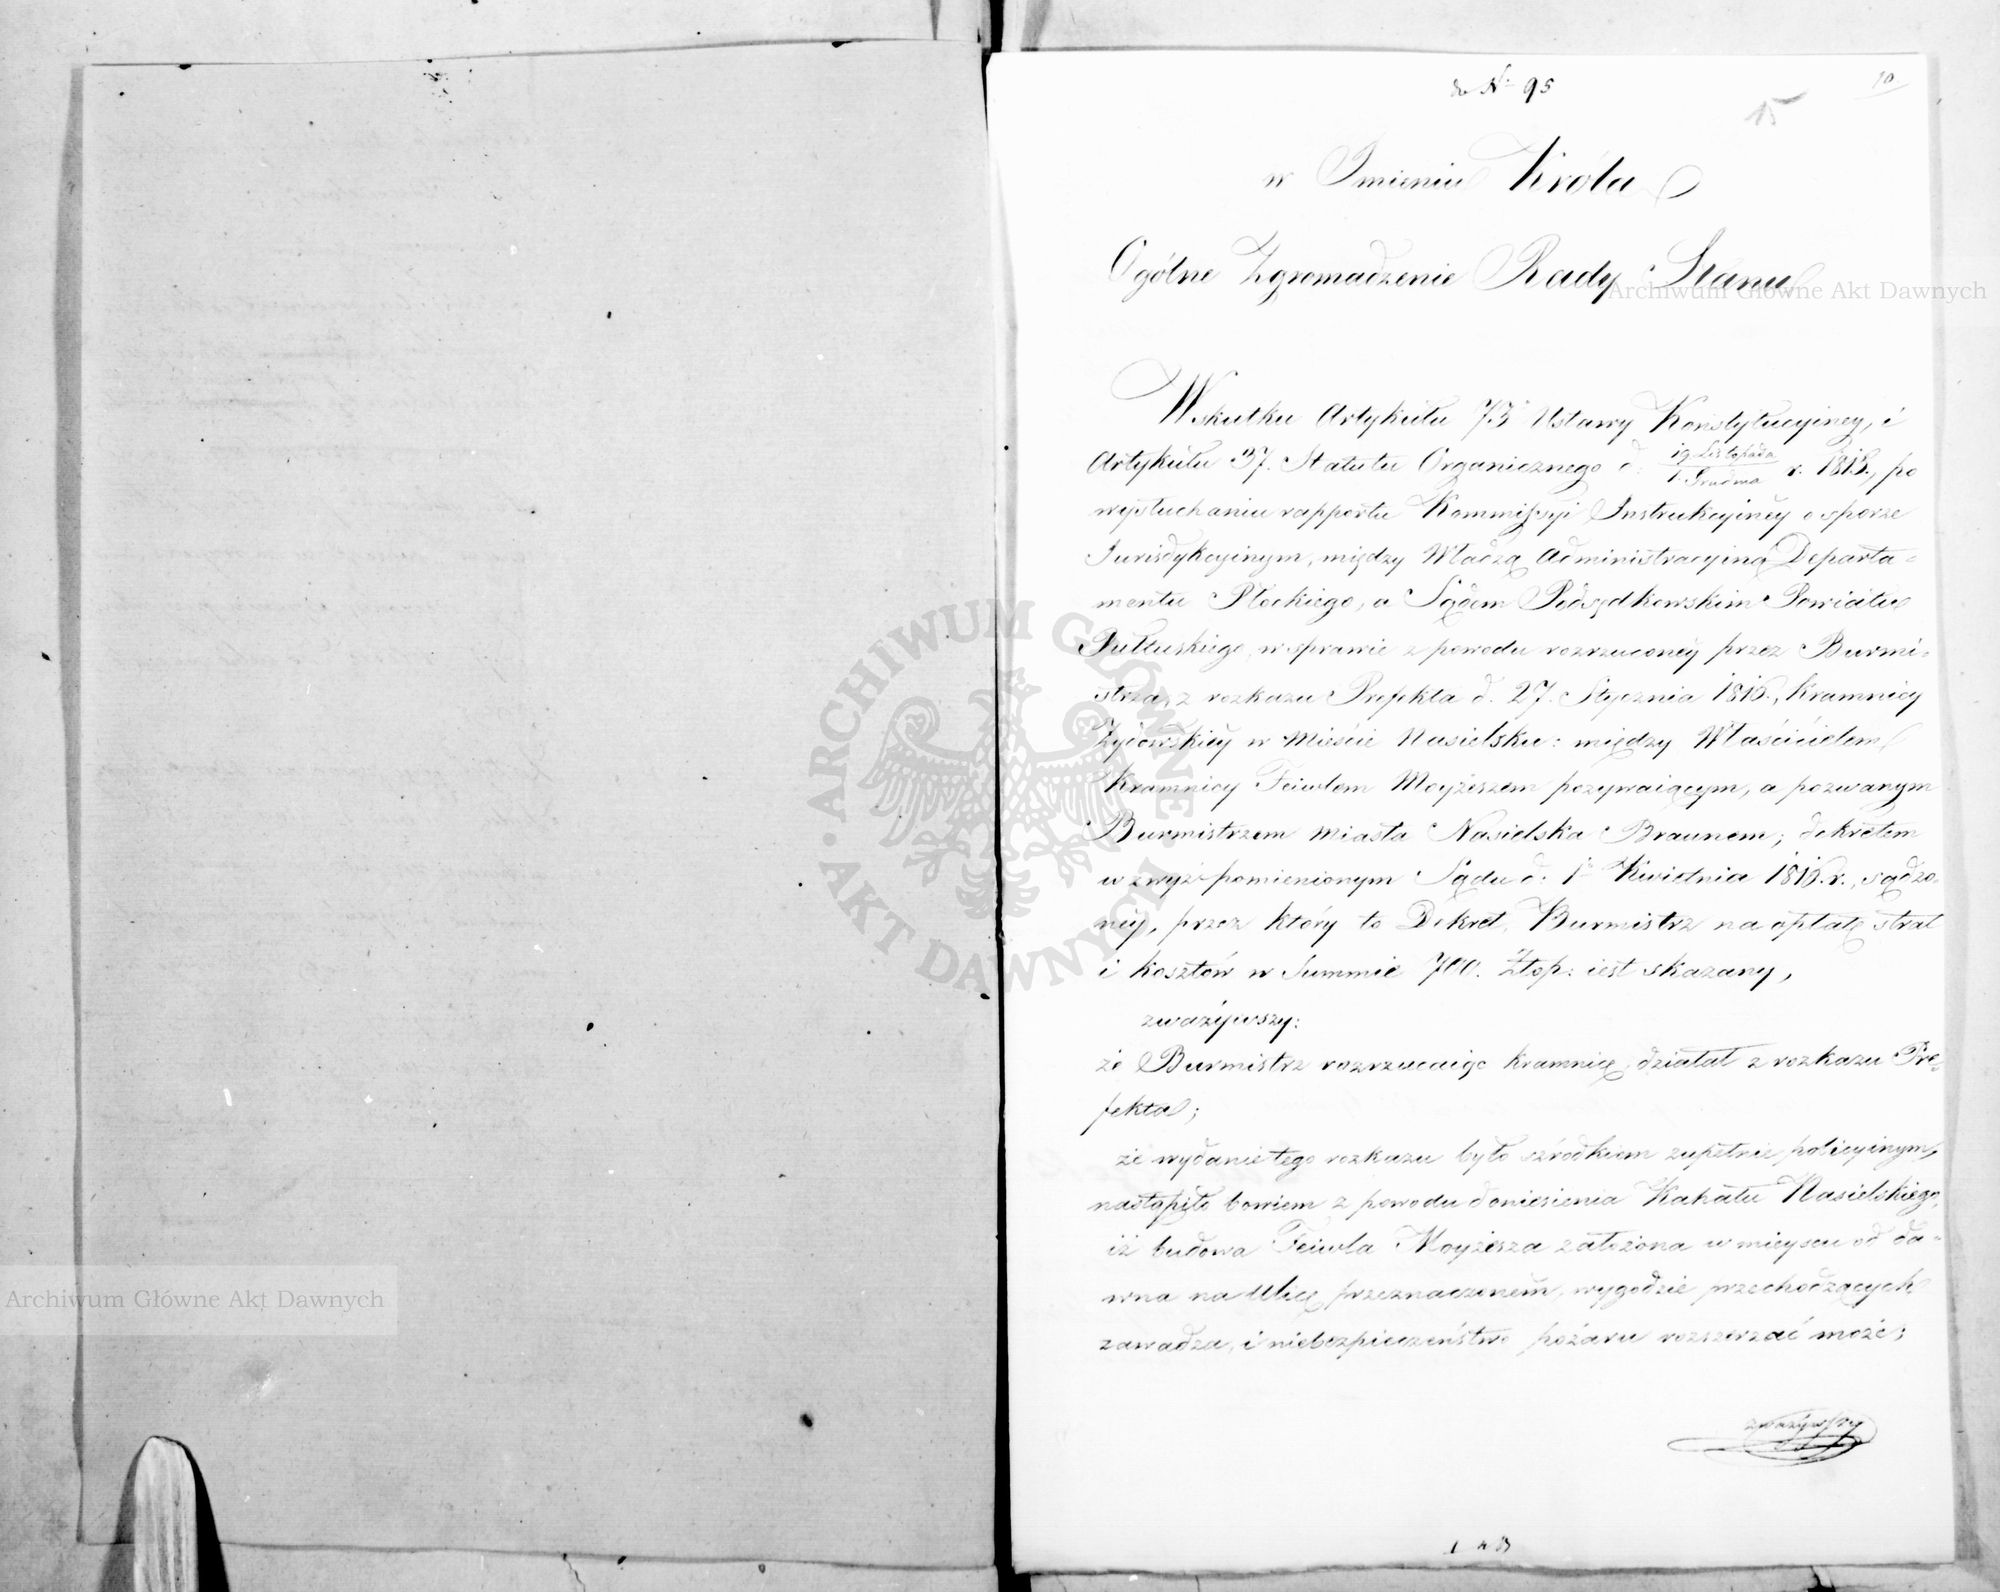 do Nº 95
10
15
w Imieniu Króla
Ogólne Zgromadzenie Rady Stanu
Archiwum Główne Akt Dawnych
Wskutku Artykułu 73 Ustawy Konstytucyiney, i
Artykułu 37. Statutu Organicznego d. 19. Listopada / 1. Grudnia r. 1815., po
wysłuchaniu rapportu Kommissyi Instrukcyiney o sporze
Jurisdykcyinym, między Władzą Administracyiną Departa-
mentu Płockiego, a Sądem Podsędkowskim Powiatu
Pułtuskiego, w sprawie z powodu rozrzuconey przez Burmi-
strza, z rozkazu Prefekta d. 27. Stycznia 1816., Kramnicy
Żydowskiey w Mieście Nasielsku: między Właścicielem
Kramnicy Feiwlem Moyżeszem pozywaiącym, a pozwanym
Burmistrzem Miasta Nasielska Braunem; dekretem
wzwyż pomienionym Sądu d. 1º Kwietnia 1816. r., sądzo-
ney, przez który to Dekret, Burmistrz na opłatę strat
i kosztów w Summie 700. Złop: iest skazany,
zważywszy:
że Burmistrz rozrzucaiąc kramnicę, działał z rozkazu Pre-
fekta;
że wydanie tego rozkazu było szrodkiem zupełnie policyinym,
nastąpiło bowiem z powodu doniesienia Kahału Nasielskiego,
iż budowa Feiwla Moyżesza założona w mieyscu od da-
wna na Ulicę przeznaczonem, wygodzie przechodzących
zawadza, i niebezpieczeństwo pożaru rozszerzać może;
zważywszy
Archiwum Główne Akt Dawnych
ARCHIWUM GŁÓWNE · AKT DAWNYCH ·